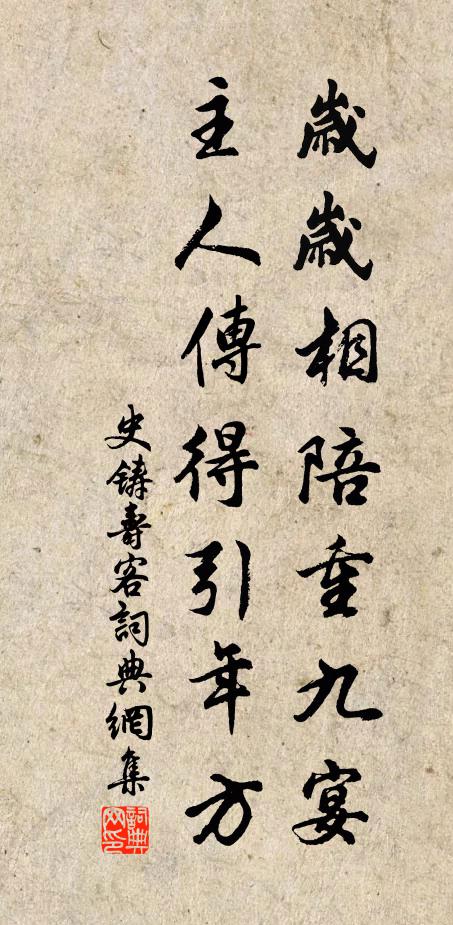 歲歲相陪重九宴
主人傳得引年方
史鑄壽客詞典網集
詞典網印